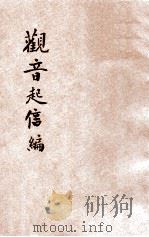 觀音起信編
mtoou.info